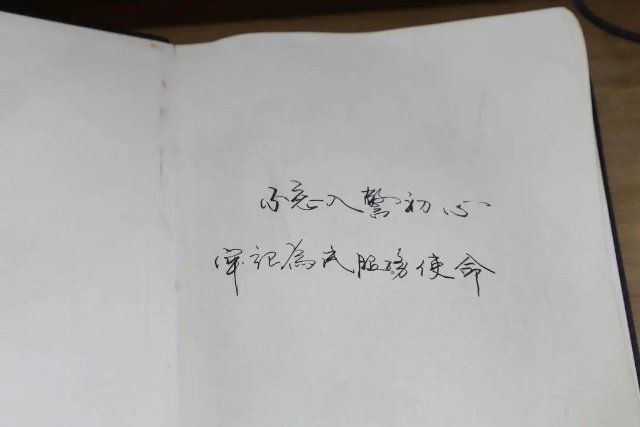 不忘入警初心
牢记為民服务使命